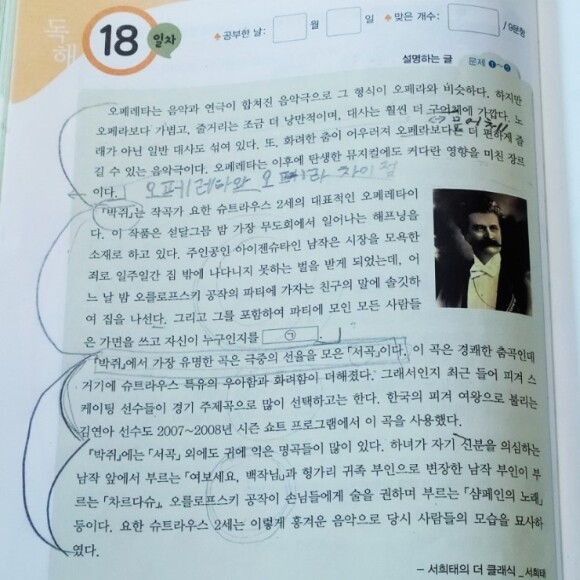 독해
18 일차
◆공부한 날: 월 일 ◆맞은 개수: /9문항
설명하는 글 문제 ❶~❺
오페레타는 음악과 연극이 합쳐진 음악극으로 그 형식이 오페라와 비슷하다. 하지만
오페라보다 가볍고, 줄거리는 조금 더 낭만적이며, 대사는 훨씬 더 구어체에 가깝다. 노
↔문어체
래가 아닌 일반 대사도 섞여 있다. 또, 화려한 춤이 어우러져 오페라보다는 더 편하게 즐
길 수 있는 음악극이다. 오페레타는 이후에 탄생한 뮤지컬에도 커다란 영향을 미친 장르
이다. 오페레타와 오페라 차이점
『박쥐』는 작곡가 요한 슈트라우스 2세의 대표적인 오페레타이
다. 이 작품은 섣달그믐 밤 가장 무도회에서 일어나는 해프닝을
소재로 하고 있다. 주인공인 아이젠슈타인 남작은 시장을 모욕한
죄로 일주일간 집 밖에 나다니지 못하는 벌을 받게 되었는데, 어
느 날 밤 오를로프스키 공작의 파티에 가자는 친구의 말에 솔깃하
여 집을 나선다. 그리고 그를 포함하여 파티에 모인 모든 사람들
은 가면을 쓰고 자신이 누구인지를 ㉠
『박쥐』에서 가장 유명한 곡은 극중의 선율을 모은 「서곡」이다. 이 곡은 경쾌한 춤곡인데
거기에 슈트라우스 특유의 우아함과 화려함이 더해졌다. 그래서인지 최근 들어 피겨 스
케이팅 선수들이 경기 주제곡으로 많이 선택하고는 한다. 한국의 피겨 여왕으로 불리는
김연아 선수도 2007~2008년 시즌 쇼트 프로그램에서 이 곡을 사용했다.
『박쥐』에는 「서곡」 외에도 귀에 익은 명곡들이 많이 있다. 하녀가 자기 신분을 의심하는
남작 앞에서 부르는 「여보세요, 백작님」과 헝가리 귀족 부인으로 변장한 남작 부인이 부
르는 「차르다슈」, 오를로프스키 공작이 손님들에게 술을 권하며 부르는 「샴페인의 노래」
등이다. 요한 슈트라우스 2세는 이렇게 흥겨운 음악으로 당시 사람들의 모습을 묘사하
였다.
– 서희태의 더 클래식 _서희태